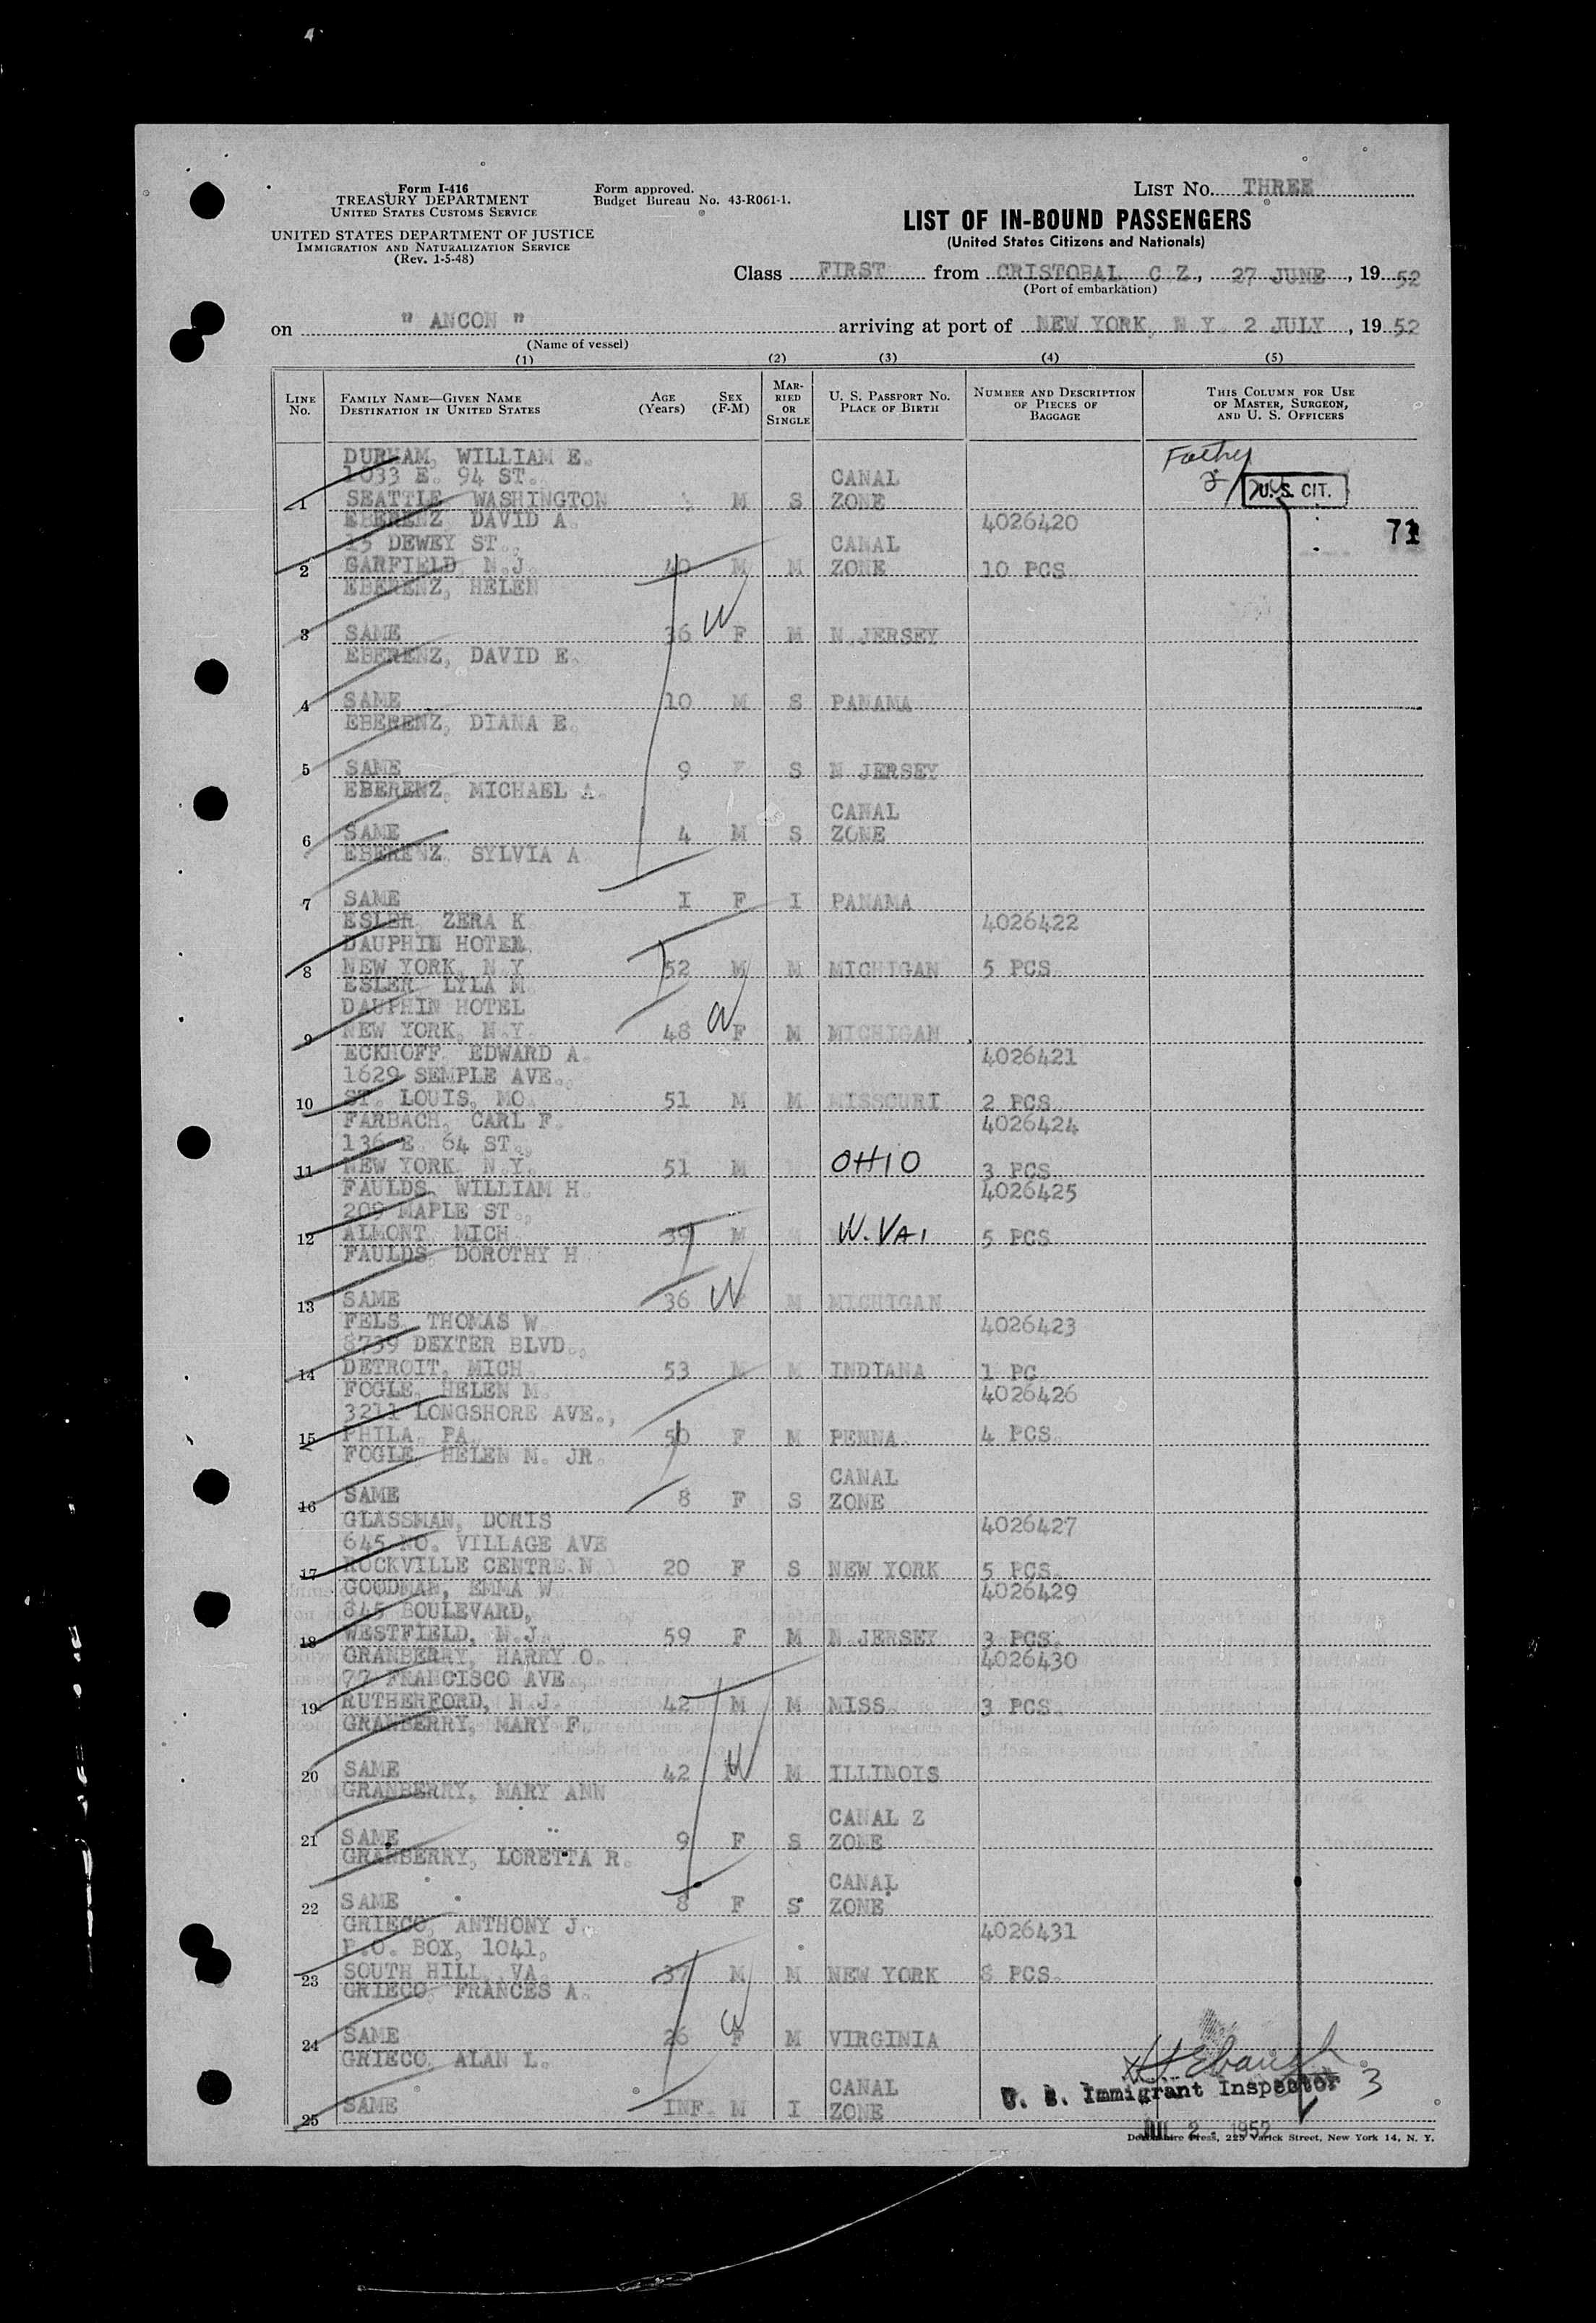 Form I-416
TREASURY DEPARTMENT
UNITED STATES CUSTOMS SERVICE
UNITED STATES DEPARTMENT OF JUSTICE
IMMIGRATION AND NATURALIZATION SERVICE
(Rev. 1-5-48)
Form approved.
Budget Bureau No. 43-R061-1.
LIST No. THREE
LIST OF IN-BOUND PASSENGERS
(United States Citizens and Nationals)
Class FIRST from CRISTOBAL, C.Z., 27 JUNE, 1952
(Port of embarkation)
on " ANCON " arriving at port of NEW YORK, N.Y. 2 JULY, 1952
(Name of vessel)
(1) (2) (3) (4) (5)
LINE No. FAMILY NAME—GIVEN NAME DESTINATION IN UNITED STATES AGE (Years) SEX (F-M) MARRIED OR SINGLE U. S. PASSPORT NO. PLACE OF BIRTH NUMBER AND DESCRIPTION OF PIECES OF BAGGAGE THIS COLUMN FOR USE OF MASTER, SURGEON, AND U. S. OFFICERS
DURHAM, WILLIAM E.
1033 E. 94 ST., CANAL
1 SEATTLE, WASHINGTON M S ZONE U. S. CIT.
EBERENZ, DAVID A. 4026420 71
15 DEWEY ST., CANAL
2 GARFIELD, N.J. 40 M M ZONE 10 PCS.
EBERENZ, HELEN
3 SAME 36 W F M N.JERSEY
EBERENZ, DAVID E.
4 SAME 10 M S PANAMA
EBERENZ, DIANA E.
5 SAME 9 F S N.JERSEY
EBERENZ, MICHAEL A.
CANAL
6 SAME 4 M S ZONE
EBERENZ, SYLVIA A.
7 SAME I F I PANAMA
ESLER, ZERA K. 4026422
DAUPHIN HOTEL
8 NEW YORK, N.Y. 52 M M MICHIGAN 5 PCS.
ESLER, LYLA M.
DAUPHIN HOTEL
9 NEW YORK, N.Y. 48 W F M MICHIGAN
ECKHOFF, EDWARD A. 4026421
1629 SEMPLE AVE.,
10 ST. LOUIS, MO. 51 M M MISSOURI 2 PCS.
FARBACH, CARL F. 4026424
136 E. 64 ST.,
11 NEW YORK, N.Y. 51 M OHIO 3 PCS.
FAULDS, WILLIAM H. 4026425
209 MAPLE ST.,
12 ALMONT, MICH. 39 M W. VA. 5 PCS.
FAULDS, DOROTHY H.
13 SAME 36 W M MICHIGAN
FELS, THOMAS W. 4026423
8739 DEXTER BLVD.,
14 DETROIT, MICH. 53 M M INDIANA 1 PC.
FOGLE, HELEN M. 4026426
3211 LONGSHORE AVE.,
15 PHILA. PA. 50 F M PENNA. 4 PCS.
FOGLE, HELEN M. JR.
CANAL
16 SAME 8 F S ZONE
GLASSMAN, DORIS 4026427
645 NO. VILLAGE AVE
17 ROCKVILLE CENTRE.N.Y 20 F S NEW YORK 5 PCS.
GOODMAN, EMMA W. 4026429
845 BOULEVARD,
18 WESTFIELD, N.J. 59 F M N.JERSEY 3 PCS.
GRANBERRY, HARRY O. 4026430
77 FRANCISCO AVE.
19 RUTHERFORD, N.J. 42 M M MISS. 3 PCS.
GRANBERRY, MARY F.
20 SAME 42 W M ILLINOIS
GRANBERRY, MARY ANN
CANAL Z
21 SAME 9 F S ZONE
GRANBERRY, LORETTA R.
CANAL
22 SAME 8 F S ZONE
GRIECO, ANTHONY J. 4026431
P.O. BOX, 1041,
23 SOUTH HILL, VA. 37 M M NEW YORK 8 PCS.
GRIECO, FRANCES A.
24 SAME 26 W F M VIRGINIA
GRIECO, ALAN L.
CANAL
25 SAME INF. M I ZONE
U. S. Immigrant Inspector 3
JUL 2 - 1952
Devonshire Press, 225 Varick Street, New York 14, N. Y.